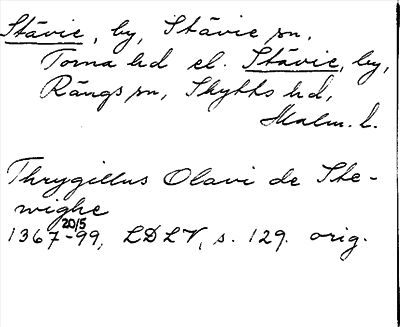 Stävie, by, Stävie sn,
Torna hd el. Stävie, by,
Rängs sn, Skytts hd,
Malm. l.
Thrygillus Olavi de Ste-
wighe
20/5
1367-99, LDLV, s. 129. orig.